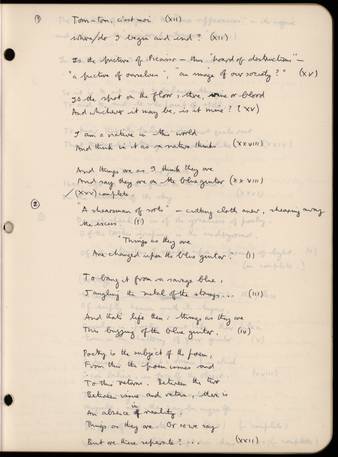 ① Tom-tom, c'est moi (XII)
where / do I begin and end? (XII)
Is the picture of Picasso — this "hoard of destructions" —
"a picture of ourselves", "an image of our society?" (XV)
Is the spot on the floor, there, wine or blood
And whichever it may be, is it mine? (XV)
I am a native in this world
And think in it as a native thinks (XXVIII)
And things are as I think they are
And say they are on the blue guitar (XXVIII)
(XXX) complete
② "A shearsman of sorts" — cutting cloth away, shearing away
the excess (I)
"Things as they are
Are changed upon the blue guitar." (I)
To bang it from a savage blue,
Jangling the metal of the strings... (III)
And that's life then: things as they are
This buzzing of the blue guitar. (IV)
Poetry is the subject of the poem,
From this the poem issues and
To this returns. Between the two
Between issue and return, there is
An absence in reality,
Things as they are. Or so we say
But are these separate? ... (XXII)